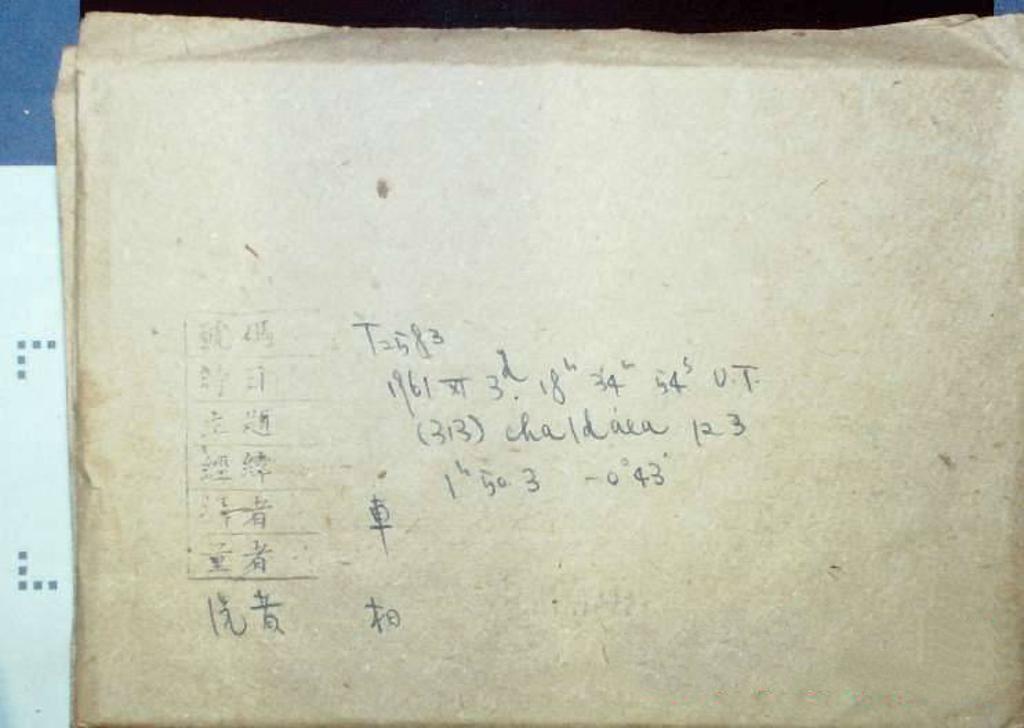 號碼 T2583
時日 1961 XI 3d. 18h 34m 54s U.T.
主題 (313) chaldaea p 3
經緯 1h 50.3 -0°43'
者 車
量者
洗者 相